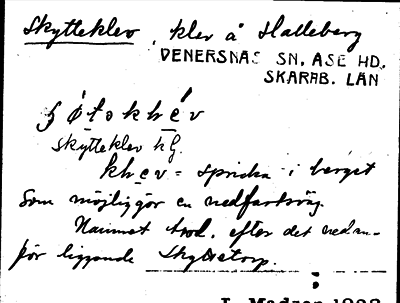 Skytteklev, klev å Halleberg
VENERSNÄS SN. ÅSE HD.
SKARAB. LÄN
skytteklev hg.
klev = spricka i berget
som möjliggör en nedfartsväg.
Namnet trol. efter det nedan-
för liggande Skyttetorp.